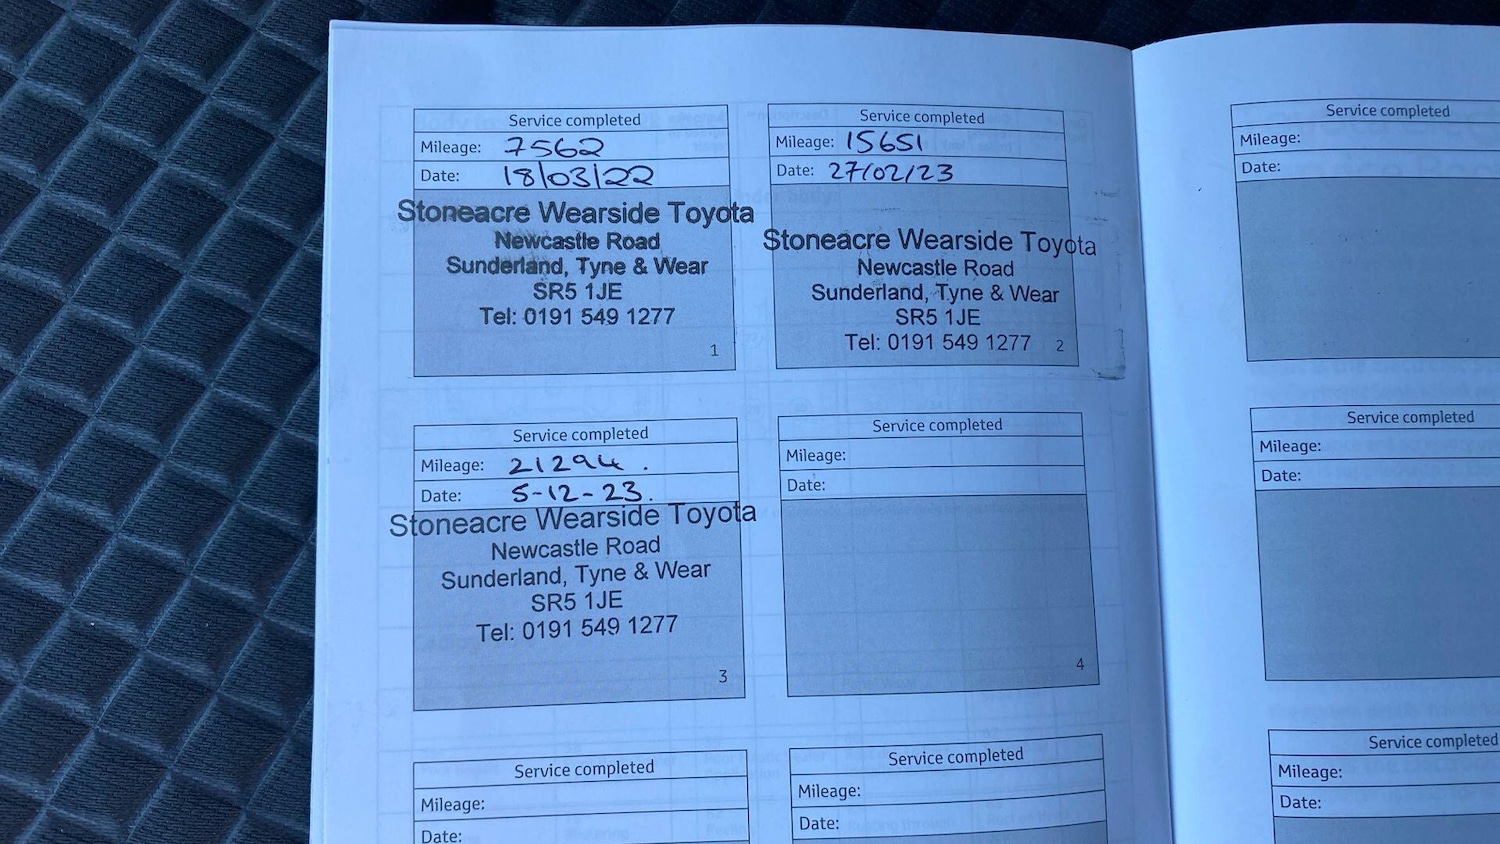 Service completed
Mileage: 7562
Date: 18/03/22
Stoneacre Wearside Toyota
Newcastle Road
Sunderland, Tyne & Wear
SR5 1JE
Tel: 0191 549 1277
1
Service completed
Mileage: 15651
Date: 27/02/23
Stoneacre Wearside Toyota
Newcastle Road
Sunderland, Tyne & Wear
SR5 1JE
Tel: 0191 549 1277
2
Service completed
Mileage: 21294.
Date: 5-12-23.
Stoneacre Wearside Toyota
Newcastle Road
Sunderland, Tyne & Wear
SR5 1JE
Tel: 0191 549 1277
3
Service completed
Mileage:
Date:
4
Service completed
Mileage:
Date:
Service completed
Mileage:
Date:
Service completed
Mileage:
Date:
Service completed
Mileage:
Date:
Service completed
Mileage:
Date: